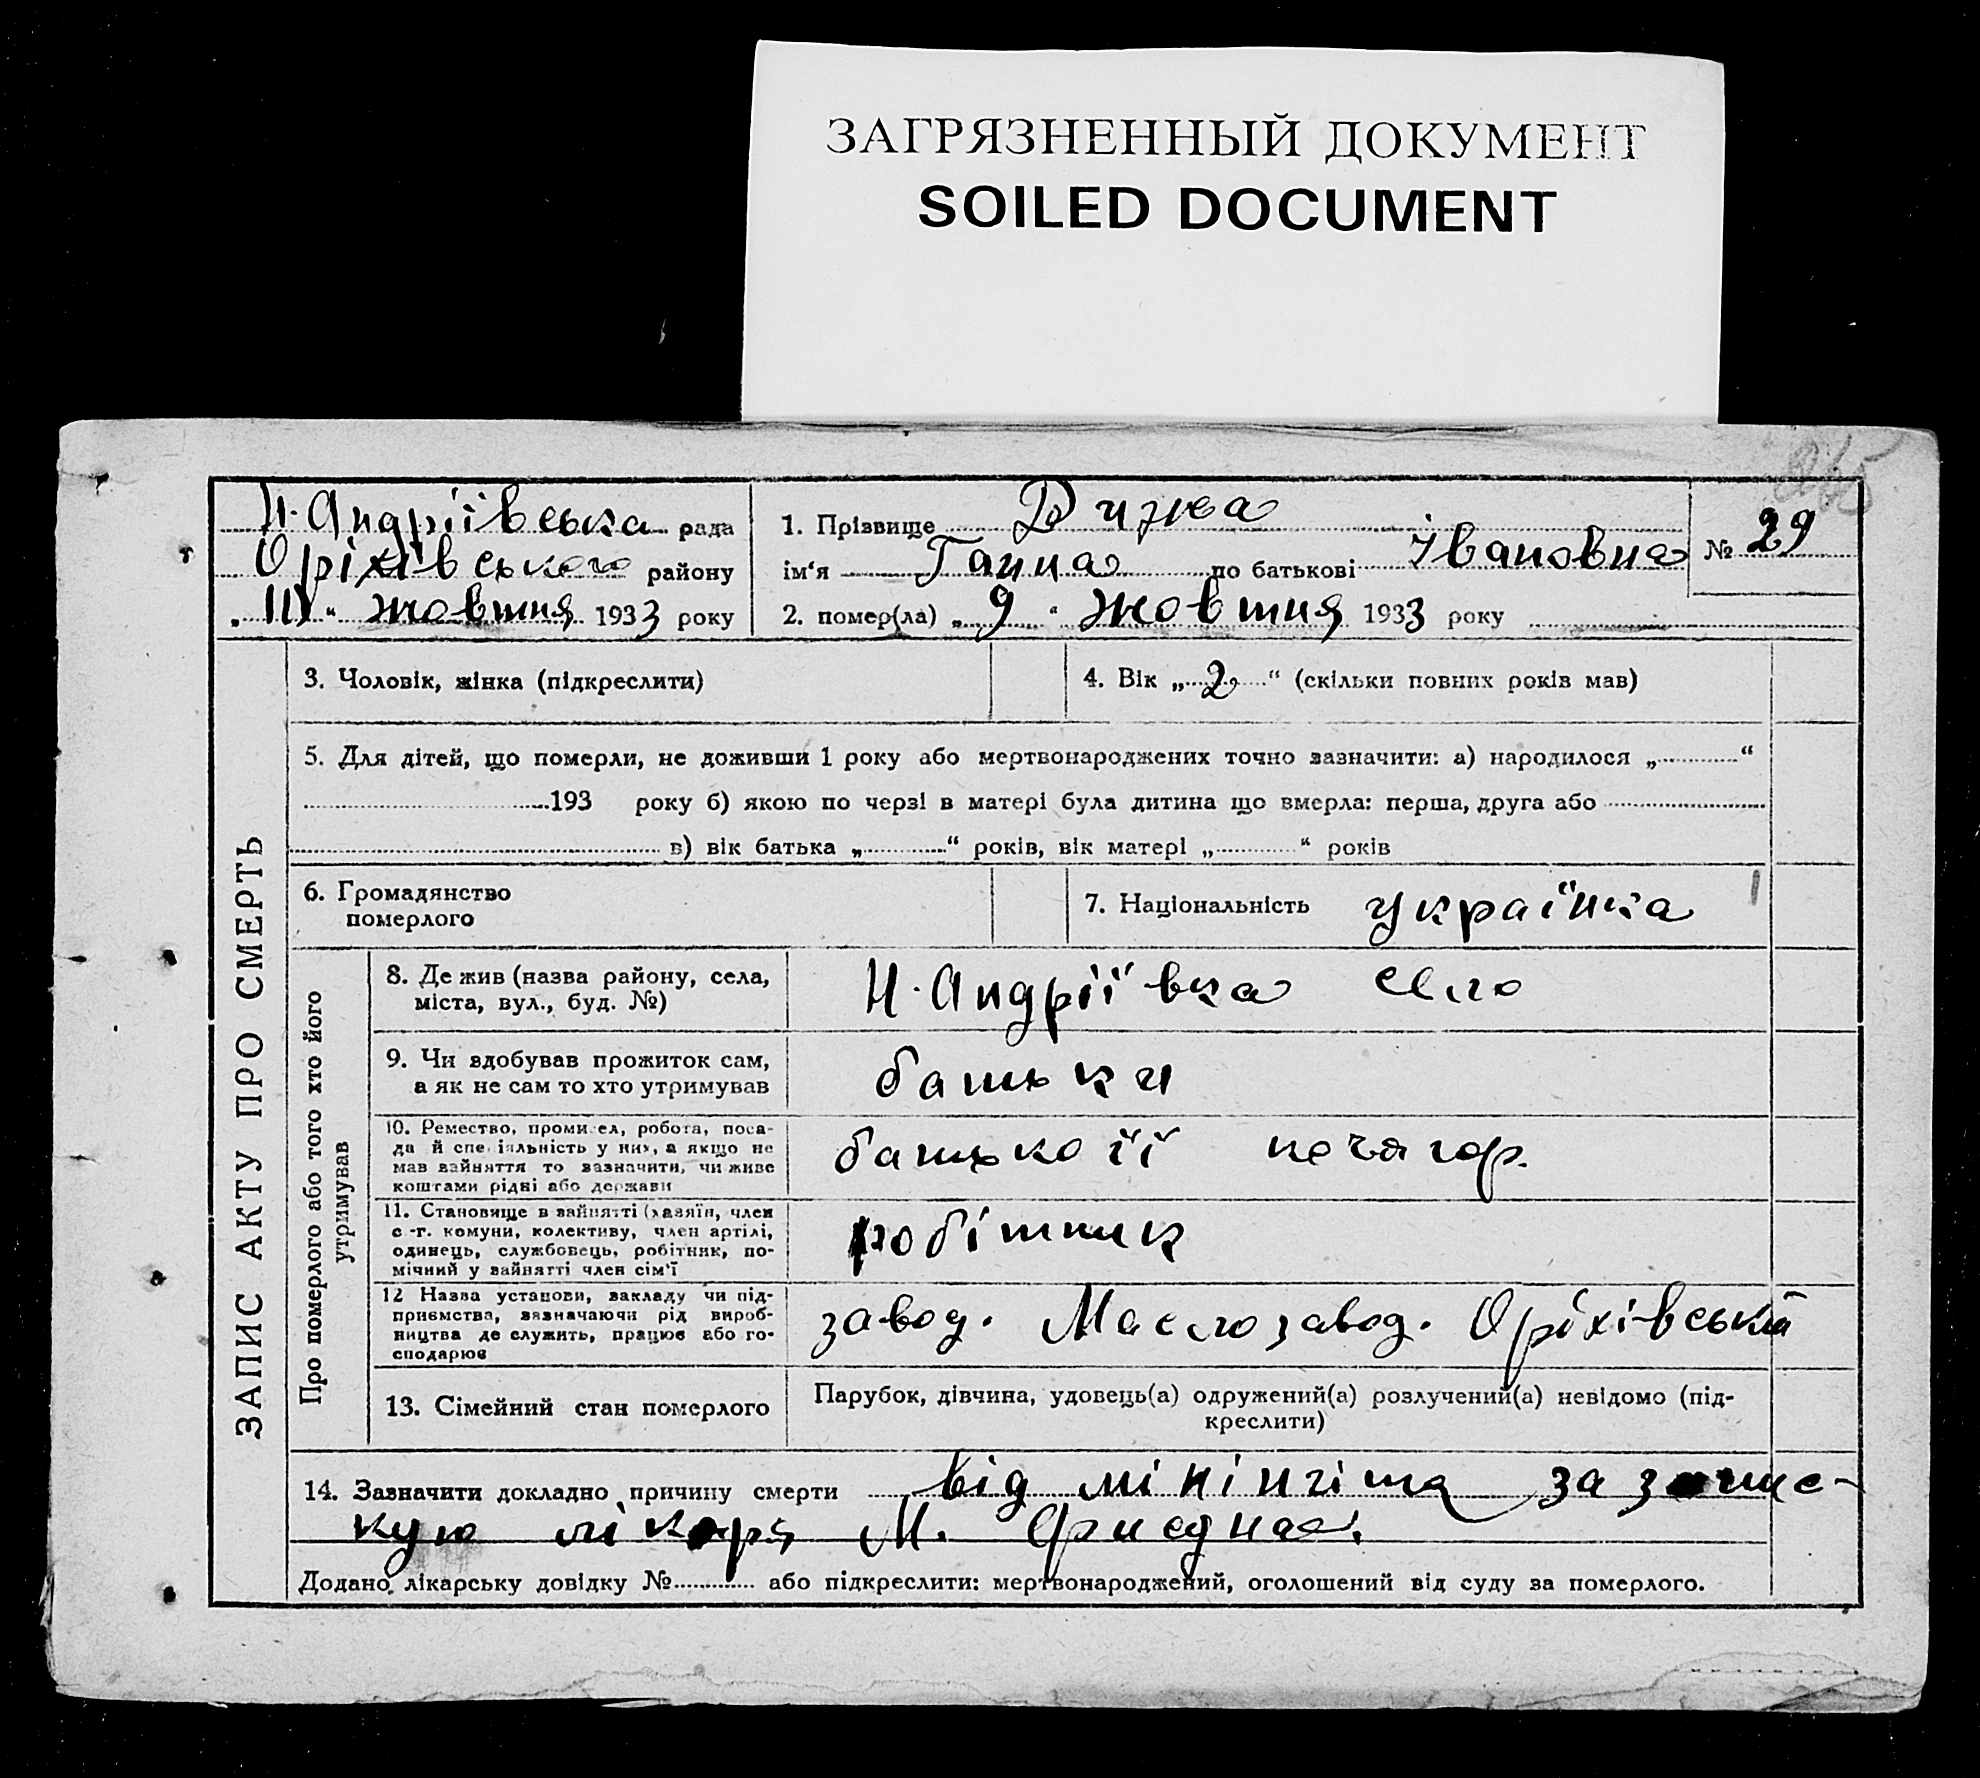 ЗАГРЯЗНЕННЫЙ ДОКУМЕНТ
SOILED DOCUMENT
Н. Андріївська рада
Оріхівського району
„ “ жовтня 1933 року
1. Прізвище Дижа
ім'я Ганна по батькові Івановна
2. помер(ла) „ 9 “ жовтня 1933 року
№ 29
ЗАПИС АКТУ ПРО СМЕРТЬ
3. Чоловік, жінка (підкреслити)
4. Вік „ 2 “ (скільки повних років мав)
5. Для дітей, що померли, не доживши 1 року або мертвонароджених точно зазначити: а) народилося „ “
193 року б) якою по черзі в матері була дитина що вмерла: перша, друга або
в) вік батька „ “ років, вік матері „ “ років
6. Громадянство
померлого
7. Національність українка
Про померлого або того хто його
утримував
8. Де жив (назва району, села,
міста, вул., буд. №)
Н. Андріївка село
9. Чи здобував прожиток сам,
а як не сам то хто утримував
батьки
10. Ремество, промисел, робота, поса-
да й спеціяльність у них, а якщо не
мав зайняття то зазначити, чи живе
коштами рідні або держави
батько її кочегар.
11. Становище в зайнятті (хазяїн, член
с.-г. комуни, колективу, член артілі,
одинець, службовець, робітник, по-
мічний у зайнятті член сім'ї
робітник
12 Назва установи, закладу чи під-
приємства, зазначаючи рід вироб-
ництва де служить, працює або го-
сподарює
завод. Маслозавод. Оріхівський
13. Сімейний стан померлого
Парубок, дівчина, удовець(а) одружений(а) розлучений(а) невідомо (під-
креслити)
14. Зазначити докладно причину смерти від мінінгіта за запис-
кую лікаря М.
Додано лікарську довідку № або підкреслити: мертвонароджений, оголошений від суду за померлого.